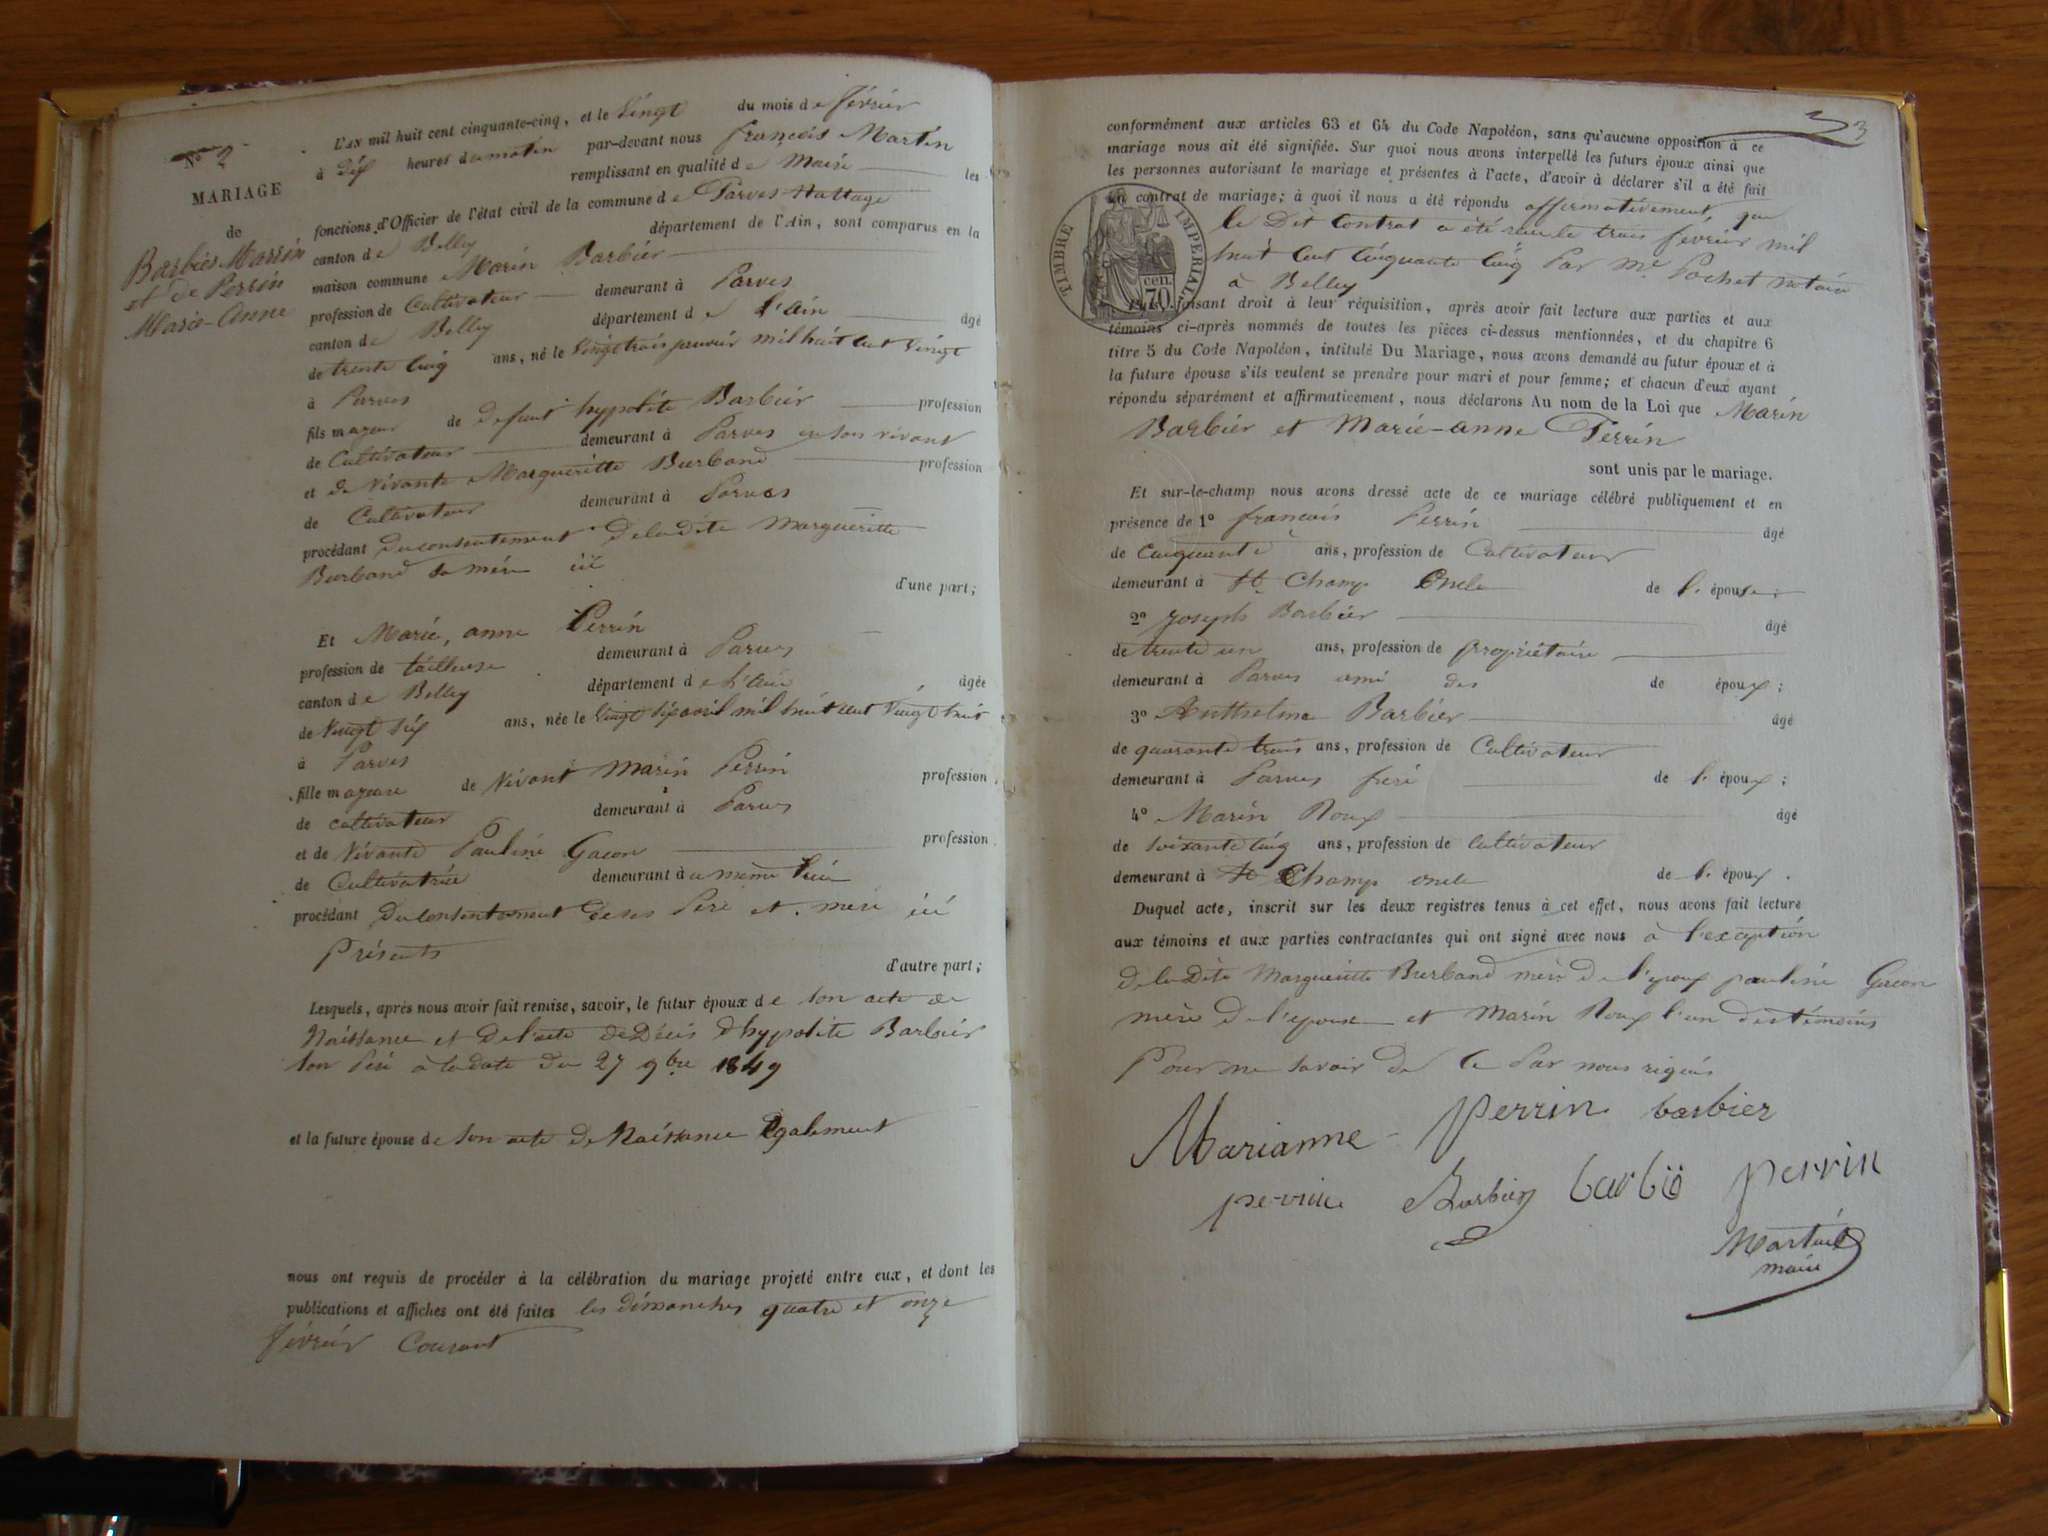 N° 2
MARIAGE
de
Barbier Marin
et de Perrin
Marie-Anne
L'AN mil huit cent cinquante-cinq, et le Vingt du mois de février
à dix heures du matin par-devant nous françois Martin
remplissant en qualité de Maire les
fonctions d'Officier de l'état civil de la commune de Parves Nattage
canton de Belley département de l'Ain, sont comparus en la
maison commune Marin Barbier
profession de Cultivateur demeurant à Parves
canton de Belley département de l'ain âgé
de trente cinq ans, né le Vingt trois janvier mil huit cent Vingt
à Parves
fils majeur de defunt hypolite Barbier profession
de Cultivateur demeurant à Parves en son vivant
et de Vivante Margueritte Burband profession
de Cultivateur demeurant à Parves
procédant du consentement de la dite Margueritte
Burband sa mère ici
d'une part;
Et Marie, anne Perrin
profession de tailleuse demeurant à Parves
canton de Belley département de l'ain âgée
de Vingt six ans, née le Vingt six avril mil huit cent Vingt huit
à Parves
fille majeure de Vivant Marin Perrin profession
de cultivateur demeurant à Parves
et de Vivante Pauline Gacon profession
de Cultivatrice demeurant au meme lieu
procédant du consentement de ses Père et mère ici
Présents
d'autre part;
Lesquels, après nous avoir fait remise, savoir, le futur époux de son acte de
Naissance et de l'acte de Décès d'hypolite Barbier
son Père à la date du 27 9bre 1849
et la future épouse de son acte de Naissance Egalement
nous ont requis de procéder à la célébration du mariage projeté entre eux, et dont les
publications et affiches ont été faites les dimanches quatre et onze
février Courant
3
conformément aux articles 63 et 64 du Code Napoléon, sans qu'aucune opposition à ce
mariage nous ait été signifiée. Sur quoi nous avons interpellé les futurs époux ainsi que
les personnes autorisant le mariage et présentes à l'acte, d'avoir à déclarer s'il a été fait
un contrat de mariage; à quoi il nous a été répondu affirmativement, que
le Dit Contrat a été reçu le trois fevrier mil
huit Cent Cinquante Cinq Par Me Pochet notaire
à Belley
TIMBRE IMPERIAL
70 cen.
Puis, faisant droit à leur réquisition, après avoir fait lecture aux parties et aux
témoins ci-après nommés de toutes les pièces ci-dessus mentionnées, et du chapitre 6
titre 5 du Code Napoléon, intitulé Du Mariage, nous avons demandé au futur époux et à
la future épouse s'ils veulent se prendre pour mari et pour femme; et chacun d'eux ayant
répondu séparément et affirmativement, nous déclarons Au nom de la Loi que Marin
Barbier et Marie-anne Perrin
sont unis par le mariage.
Et sur-le-champ nous avons dressé acte de ce mariage célébré publiquement et en
présence de 1° françois Perrin âgé
de Cinquante ans, profession de Cultivateur
demeurant à St Champ Oncle de l'épouse;
2° Joseph Barbier âgé
de trente un ans, profession de propriétaire
demeurant à Parves ami des de époux;
3° Anthelme Barbier âgé
de quarante trois ans, profession de Cultivateur
demeurant à Parves frère de l'époux;
4° Marin Roux âgé
de soixante cinq ans, profession de cultivateur
demeurant à St Champ oncle de l'époux.
Duquel acte, inscrit sur les deux registres tenus à cet effet, nous avons fait lecture
aux témoins et aux parties contractantes qui ont signé avec nous à l'exception
de la Dite Margueritte Burband mère de l'époux pauline Gacon
mère de l'epouse et Marin Roux l'un des témoins
Pour ne savoir De Ce Par nous requis
Marianne Perrin barbier
Barbier perrin
Martin
maire